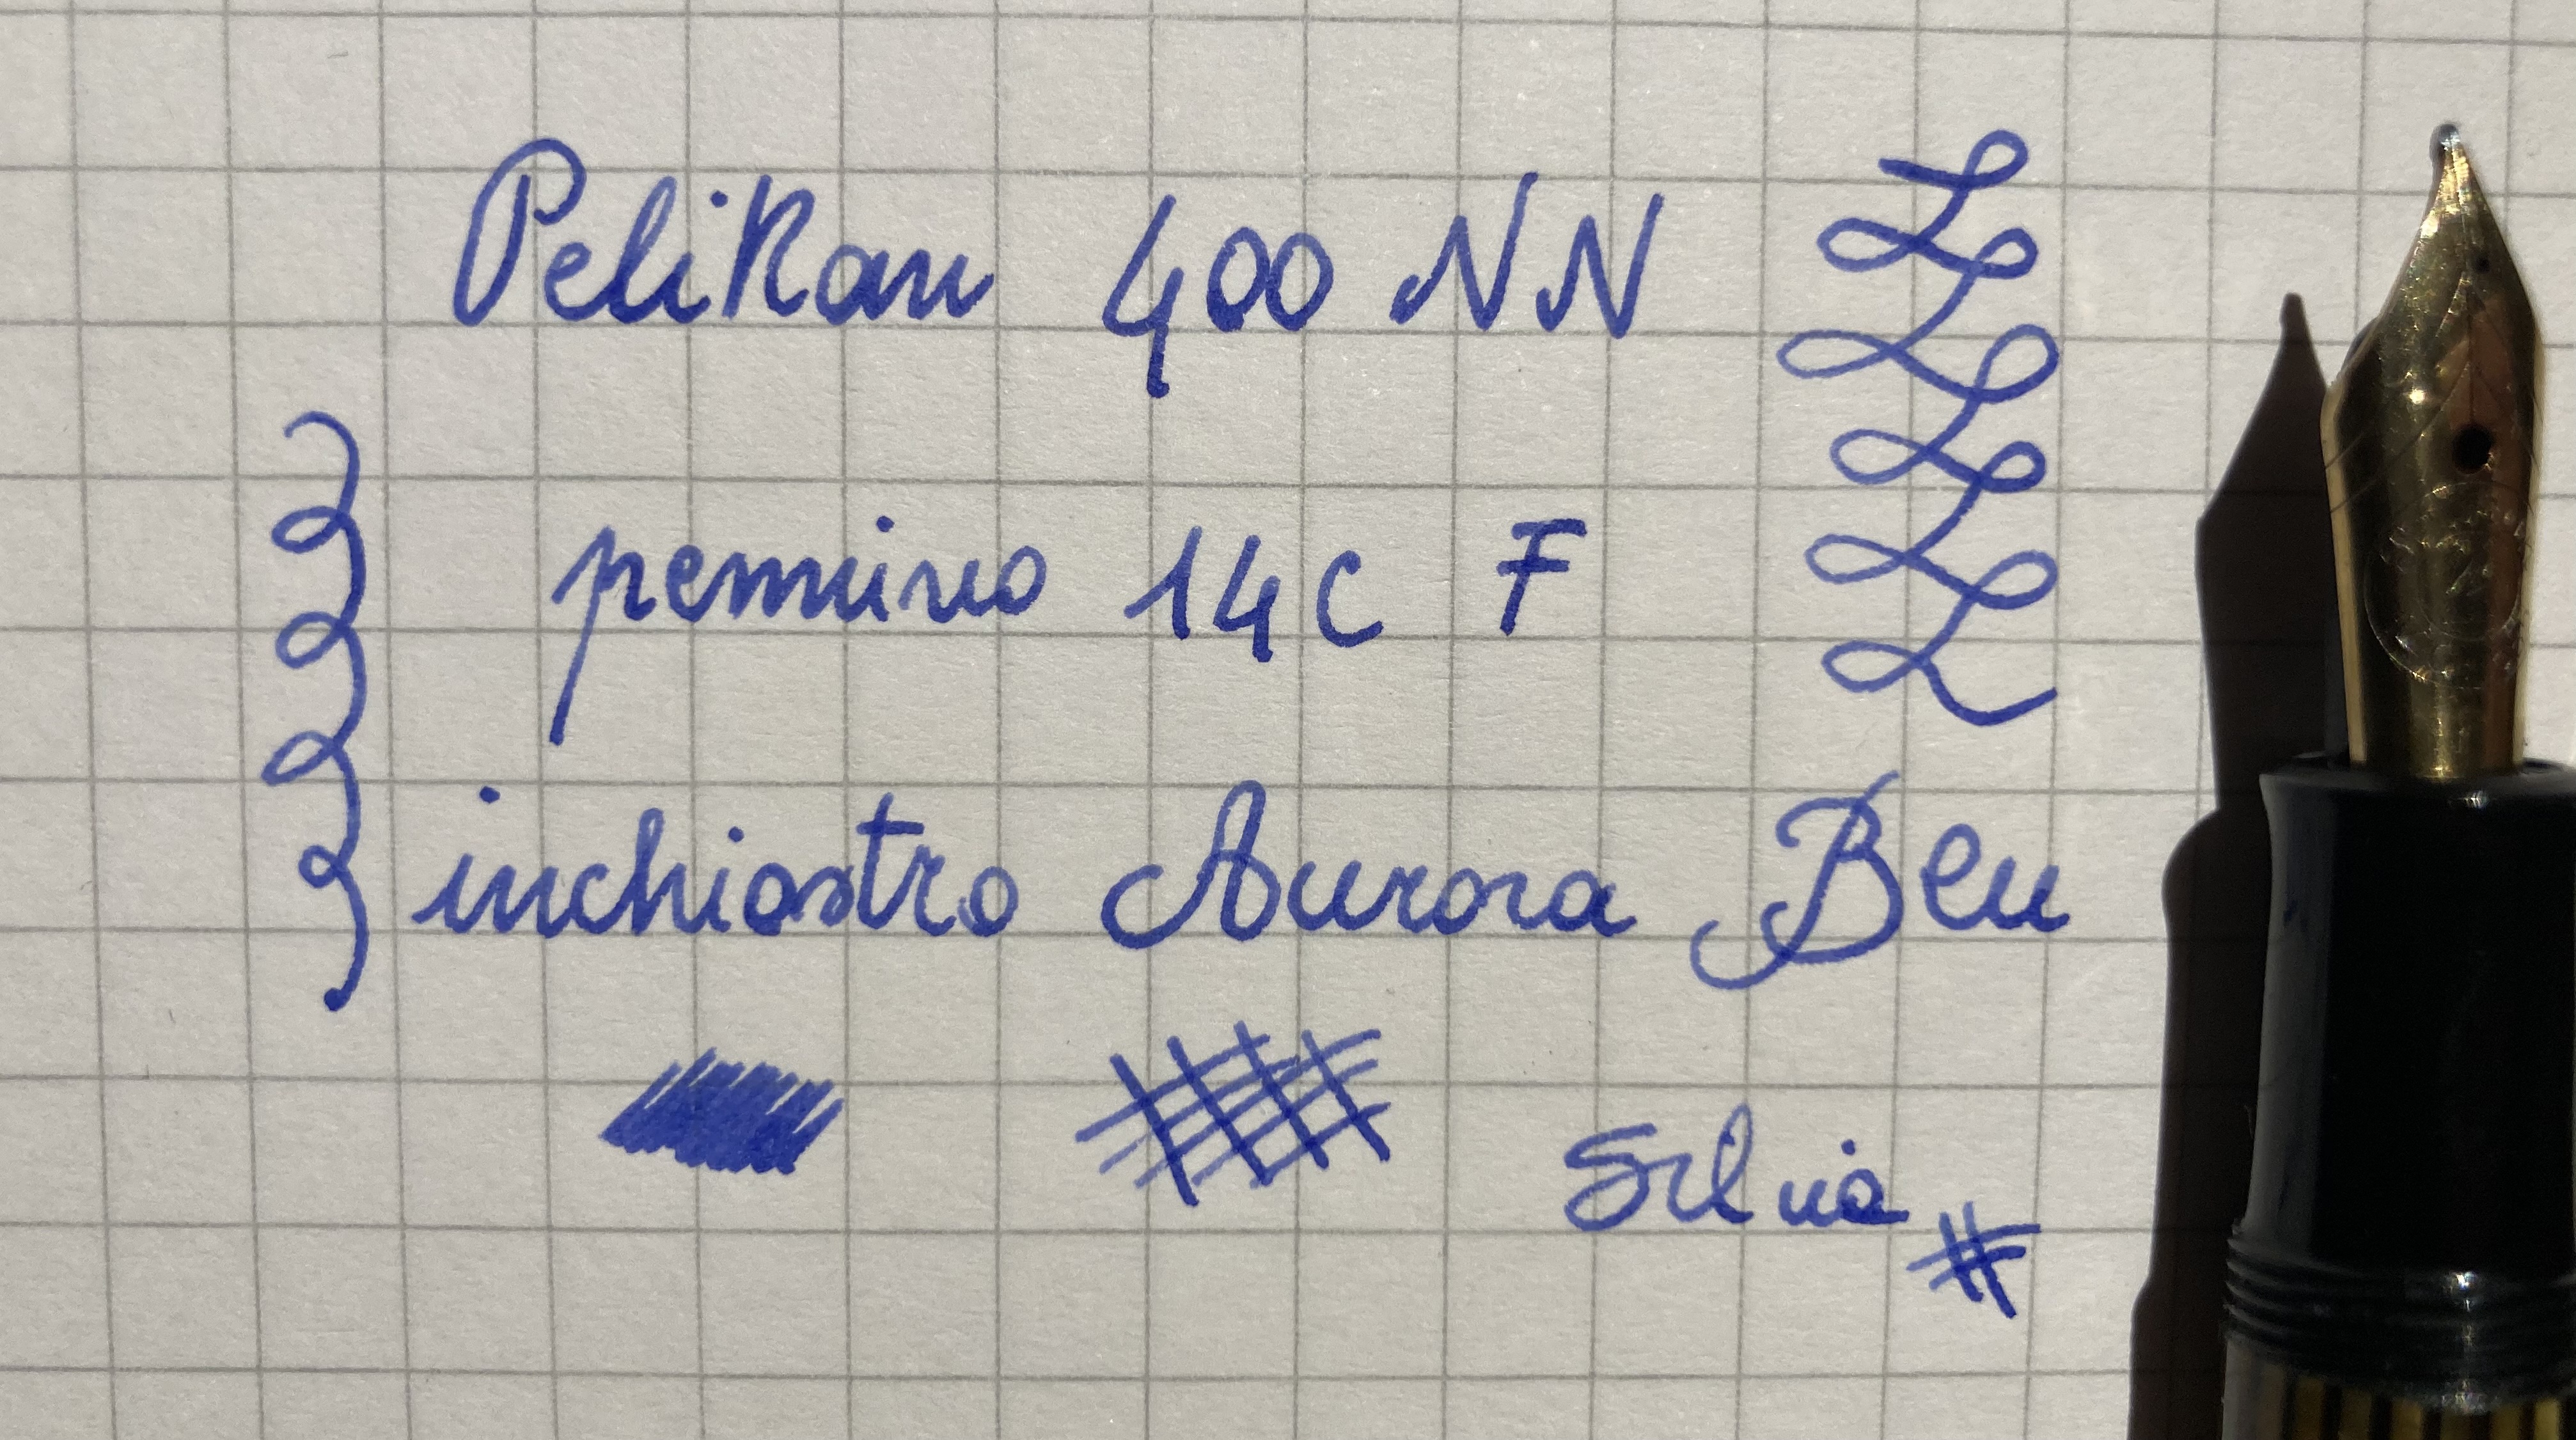 Pelikan 400 NN
pennino 14C F
inchiostro Aurora Blu
Silvia